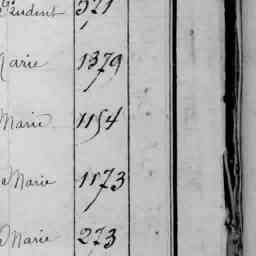 Prudent 521
Marie 1379
Marie 1154
Marie 1173
Marie 273